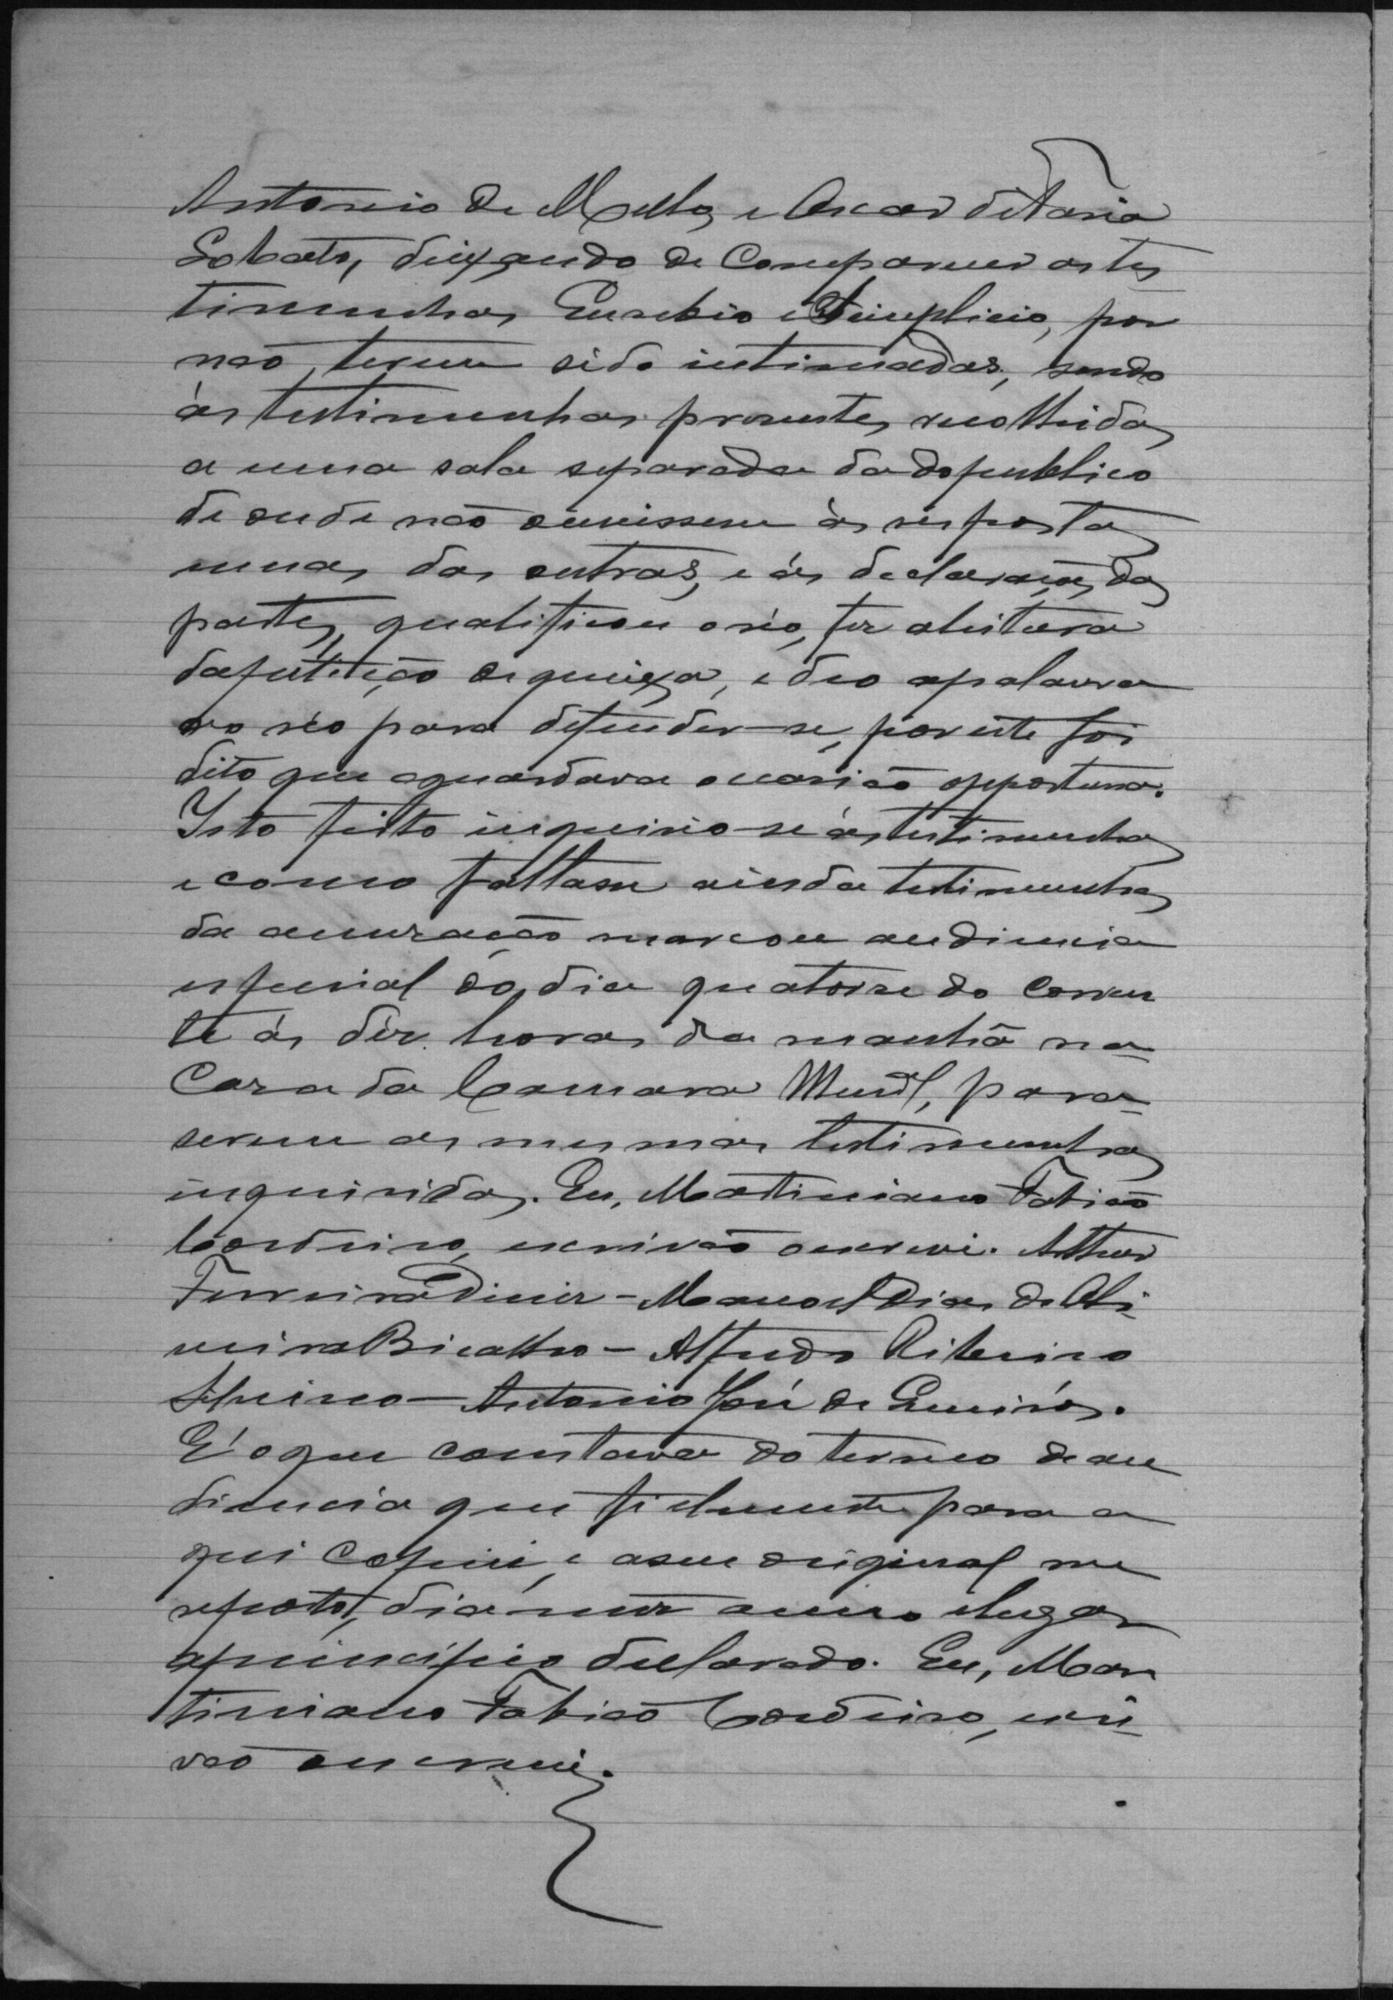 Antonio de Mello, e Oscar de Faria
Lobato, deixando de comparecer as tes
timunhas Eusebio e Simplicio, por
não terem sido intimadas, sendo
ás testimunhas presentes recolhidas
a uma sala separada da do publico
de onde não ouvissem ás respostas
umas das outras, e ás declarações das
partes, qualificou o réo, fez a leitura
da petição de queixa, e deo a palavra
ao réo para defender-se, por este foi
dito que aguardava occasião opportuna.
Isto feito inquirio-se ás testimunhas
e como faltasse ainda testimunhas
da accuzação marcou audiencia
especial do dia quatorse do corren
te ás déz horas da manhã na
Caza da Camara Munl, para
serem as mesmas testimunhas
inqueridas. Eu, Martiniano Fabião
Cordeiro, escrivão o escrevi. Arthur
Ferreira Diniz - Manoel Dias de Oli
veira Bicalho - Alfredo Ribeiro
- Antonio José de Queirós.
É o que constava do termo de au
diencia que fielmente para a
qui copiei, e aseu original me
reporto, dia mez anno e lugar
a principio declarado. Eu, Mar
tiniano Fabião Cordeiro, escri
vão o escrevi.